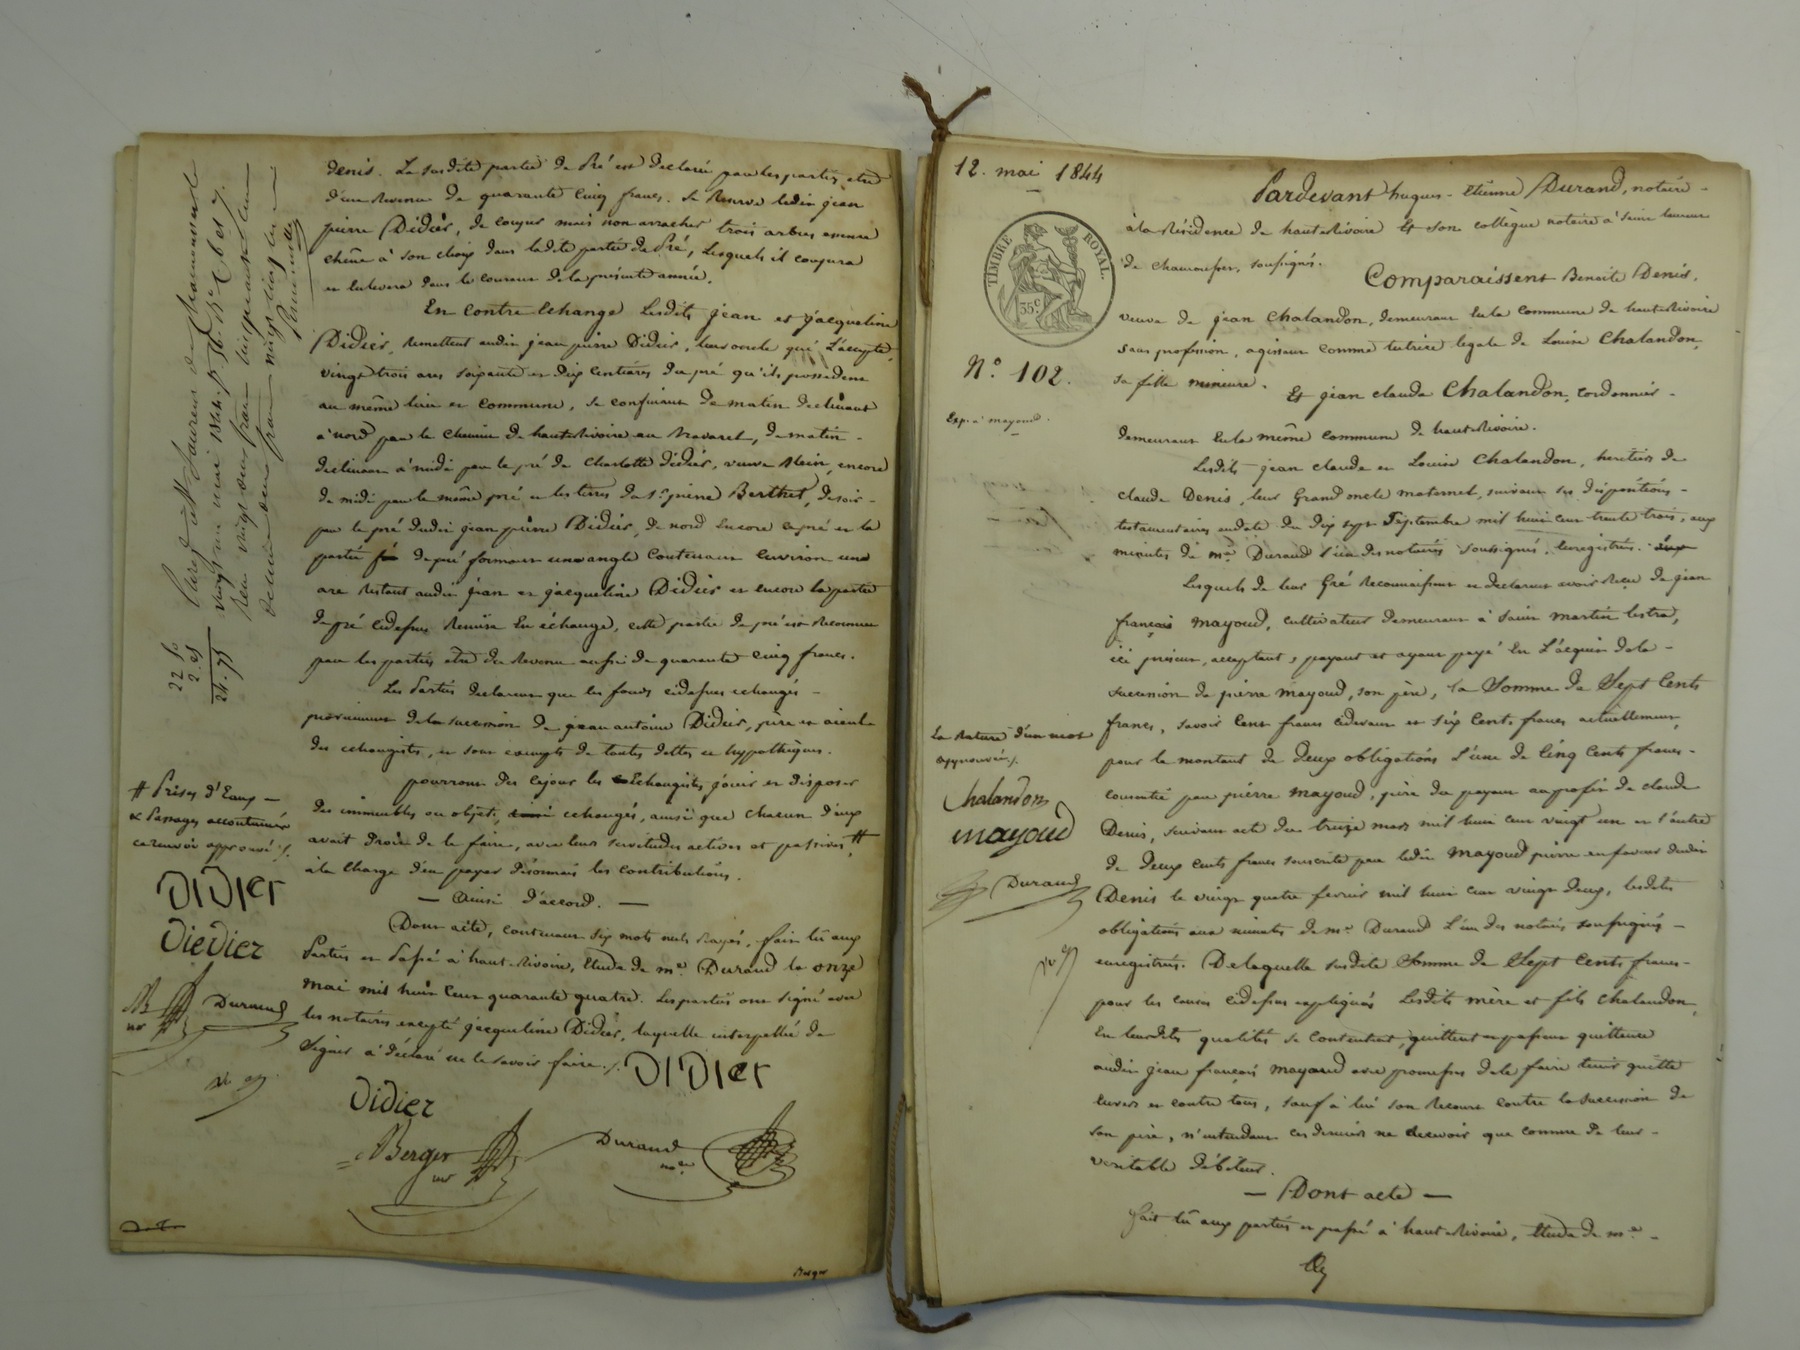 denis. La susdite partie de Pré est declarée par les parties etre
d'un Revenu de quarante Cinq francs. Se Reserve ledit jean
pierre Didier, de couper mais non arracher trois arbres essence
chêne à son choix dans ladite partie de Pré, Lesquels il coupera
et enlevera dans le courant de la présente année.
En contre Echange Lesdits jean et jacqueline
Didier, remettent audit jean pierre Didier, leur oncle qui L'accepte,
vingt trois ares soixante et dix centiares du pré qu'ils possedent
au même lieu et commune, se confinant de matin declinant
à nord par le chemin de hauterivoire au Navaret, de matin
declinant à midi par le pré de Charlotte didier, veuve Blein, encore
de midi par le même pré et les terres du sr pierre Berthet, de soir
par le pré dudit jean pierre Didier, de nord Encore ce pré et la
partie de pré formant un angle Contenant Environ une
are Restant audit jean et jacqueline Didier et encore la partie
de pré cidessus Remise En échange, cette partie de pré est Reconnue
par les parties etre du Revenu aussi de quarante cinq francs.
Les Parties declarent que les fonds cidessus echangés
proviennent de la succession de jean antoine Didier, père et aieul
des echangistes, et sont exempts de toutes dettes et hypothèques.
pourront dès cejour les Echangistes jouir et disposer
des immeubles ou objets, echangés, ainsi que chacun d'eux
avait Droit de le faire, avec leurs servitudes actives et passives #
à la charge d'en payer désormais les contributions.
— Ainsi d'accord. —
Dont acte, contenant six mots nuls Rayés, fait lû aux
Parties et Passé à hauterivoire, Etude de me Durand le onze
mai mil huit Cent quarante quatre. Les parties ont signé avec
les notaires excepté jacqueline Didier, laquelle interpellée de
signer à déclaré ne le savoir faire ./. Didier
Didier
Berger
nre
Durand
nore
# Prises d'Eaux
& Passages accoutumés
ce renvoi approuvé ./.
Didier
Diedier
B
nre
Durand
22 50
2. 25
24. 75
Berger
12. mai 1844
TIMBRE ROYAL.
35c
No. 102.
Exp. à mayoud.
Pardevant hugues-Etienne Durand, notaire
à la Résidence de hauterivoire Et son collègue notaire à
de Chamousset, soussignés.
Comparaissent Benoite Denis,
veuve de jean Chalandon, demeurant En la commune de hauterivoire
sans profession, agissant comme tutrice legale de Louise Chalandon,
sa fille mineure. Et jean claude Chalandon, cordonnier
demeurant En la même commune de hauterivoire.
Lesdits jean claude et Louise Chalandon, heritiers de
claude Denis, leur Grand oncle maternel, suivant ses dispositions
testamentaires en date du dix sept Septembre mil huit cent trente trois, aux
minutes de me Durand l'un des notaires soussignés. Enregistrés.
Lesquels de leur Gré Reconnaissent et declarent avoir Reçu de jean
françois mayoud, cultivateur demeurant à Saint martin lestra,
ici présent, acceptant, payant et ayant payé En L'acquit de la
succession de pierre mayoud, son père, la Somme de Sept Cents
francs, savoir Cent francs cidevant et six Cents francs actuellement,
pour le montant de deux obligations L'une de Cinq Cents francs
consentie par pierre mayoud, père du payant au profit de claude
Denis, suivant acte du treize mars mil huit cent vingt un et l'autre
de deux cents francs souscrite par ledit mayoud pierre en faveur dudit
Denis le vingt quatre fevrier mil huit cent vingt deux, lesdites
obligations aux minutes de me Durand L'un des notaires soussignés
enregistrées. De laquelle susdite Somme de Sept Cents francs
pour les causes cidessus expliquées Lesdits mère et fils chalandon,
En leursdites qualités se contentent, quittent et passent quittance
audit jean françois mayoud avec promesse de le faire tenir quitte
Envers et contre tous, sauf à lui son Recours contre la succession de
son père, n'entendant ces derniers ne Recevoir que comme de leur
veritable débiteur.
— Dont acte —
fait lû aux parties et passé à hauterivoire, Etude de me
La Rature d'un mot
approuvée ./.
Chalandon
mayoud
Durand